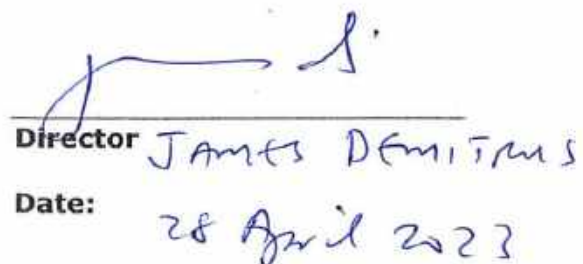 Director JAMES DEMITRIUS
Date: 28 April 2023